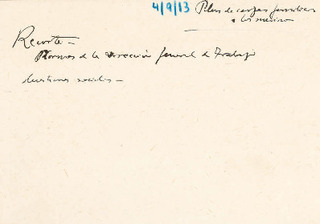 4/9/13 Plus de cargas familiares
a los
Recorte—
Normas de la Dirección General de Trabajo
Cuestiones sociales—